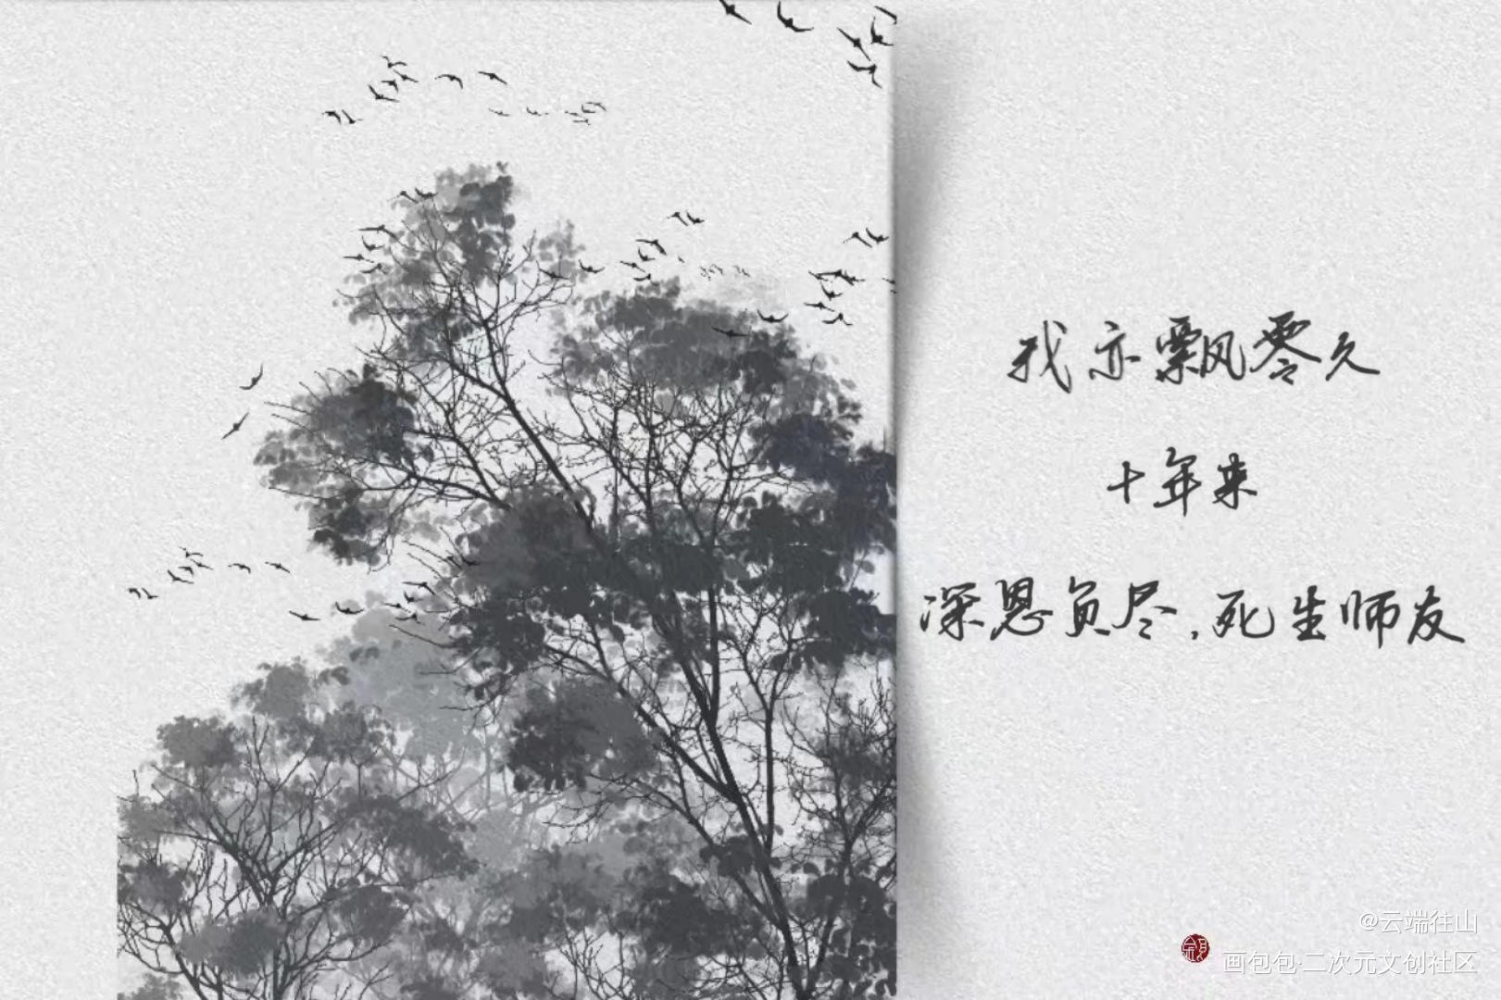 我亦飘零久
十年来
深恩负尽,死生师友
@云端往山
画包包·二次元文创社区